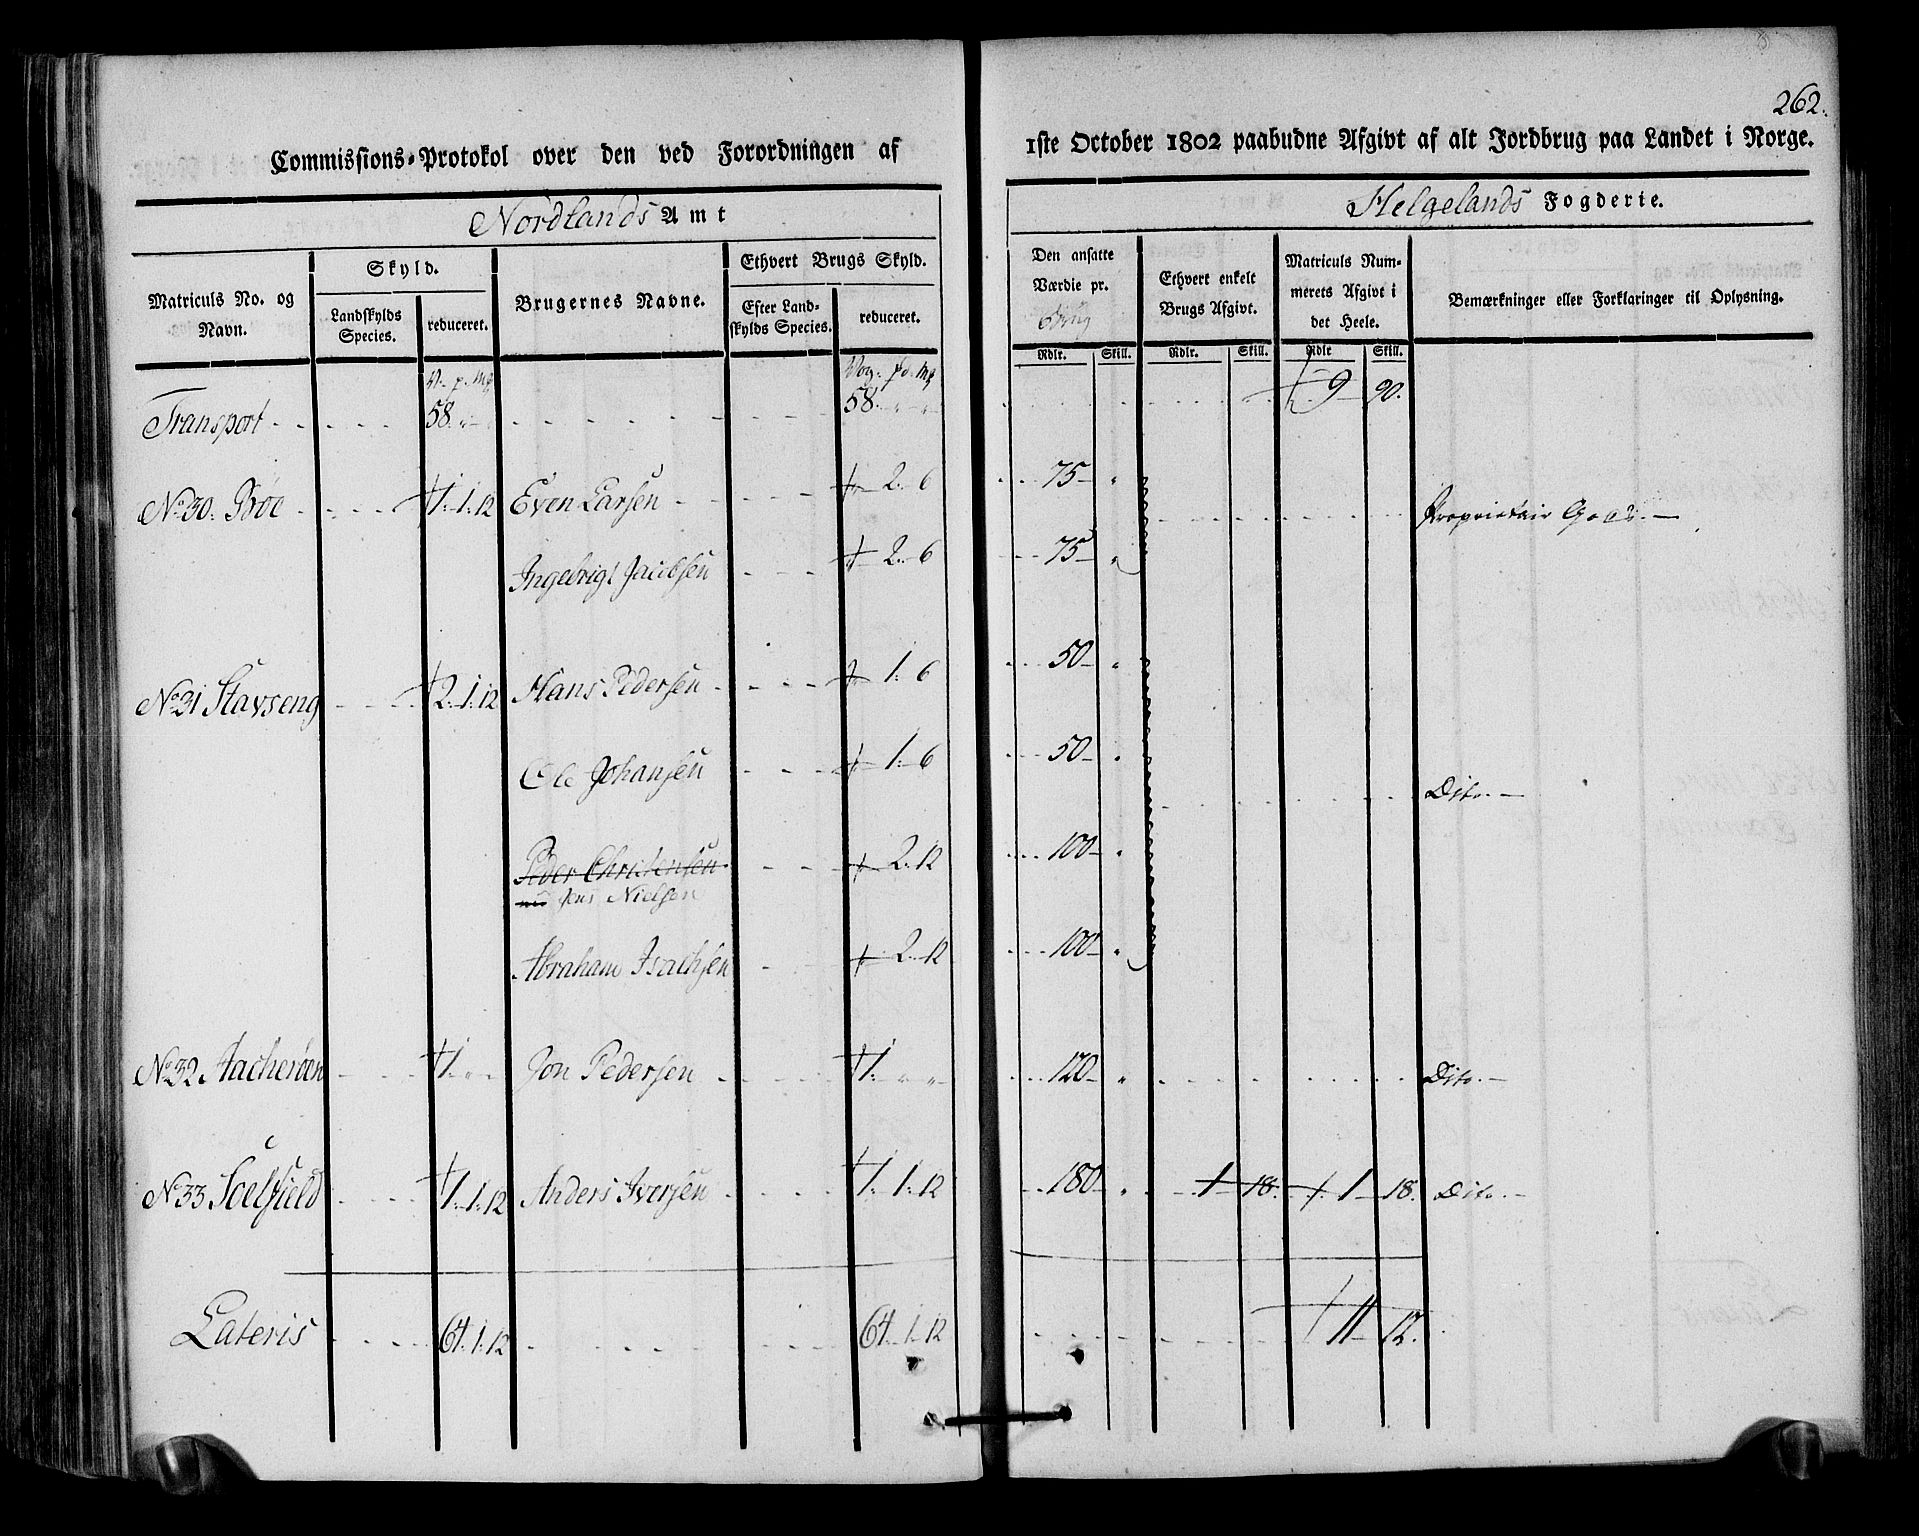 262.
Commissions-Protokol over den ved Forordningen af 1ste October 1802 paabudne Afgivt af alt Jordbrug paa Landet i Norge.
Nordlands Amt
Helgelands Fogderie.
Matriculs No. og Navn.
Skyld.
Landskylds Species.
reduceret.
Brugernes Navne.
Ethvert Brugs Skyld.
Efter Landskylds Species.
reduceret.
Den ansatte Værdie pr.
Rdlr. Skill.
Ethvert enkelt Brugs Afgivt.
Rdlr. Skill.
Matriculs Nummerets Afgivt i det Heele.
Rdlr Skill.
Bemærkninger eller Forklaringer til Oplysning.
V. p. Mk Vog. pd. Mk
Transport 58. " " 58. " " 9 90.
No 30. Bøe 1. 1. 12 Even Larsen 2. 6 75 " Proprietair Gods.
Ingebrigt Jacobsen 2. 6 75 "
No 31 Stavseng 2. 1. 12 Hans Pedersen 1. 6 50 "
Ole Johansen 1. 6 50 " Dito.
Peder Christensen 2. 12 100 "
nu Jens Nielsen
Abraham Isachsen 2. 12 100 "
No 32 Aacherøen 1. " " Jon Pedersen 1. " " 120 " Dito.
No 33 Soelfield 1. 1. 12 Anders Iversen 1. 1. 12 180 " 1 18. 1 18. Dito.
Lateris 64. 1. 12 64. 1. 12 11 12.